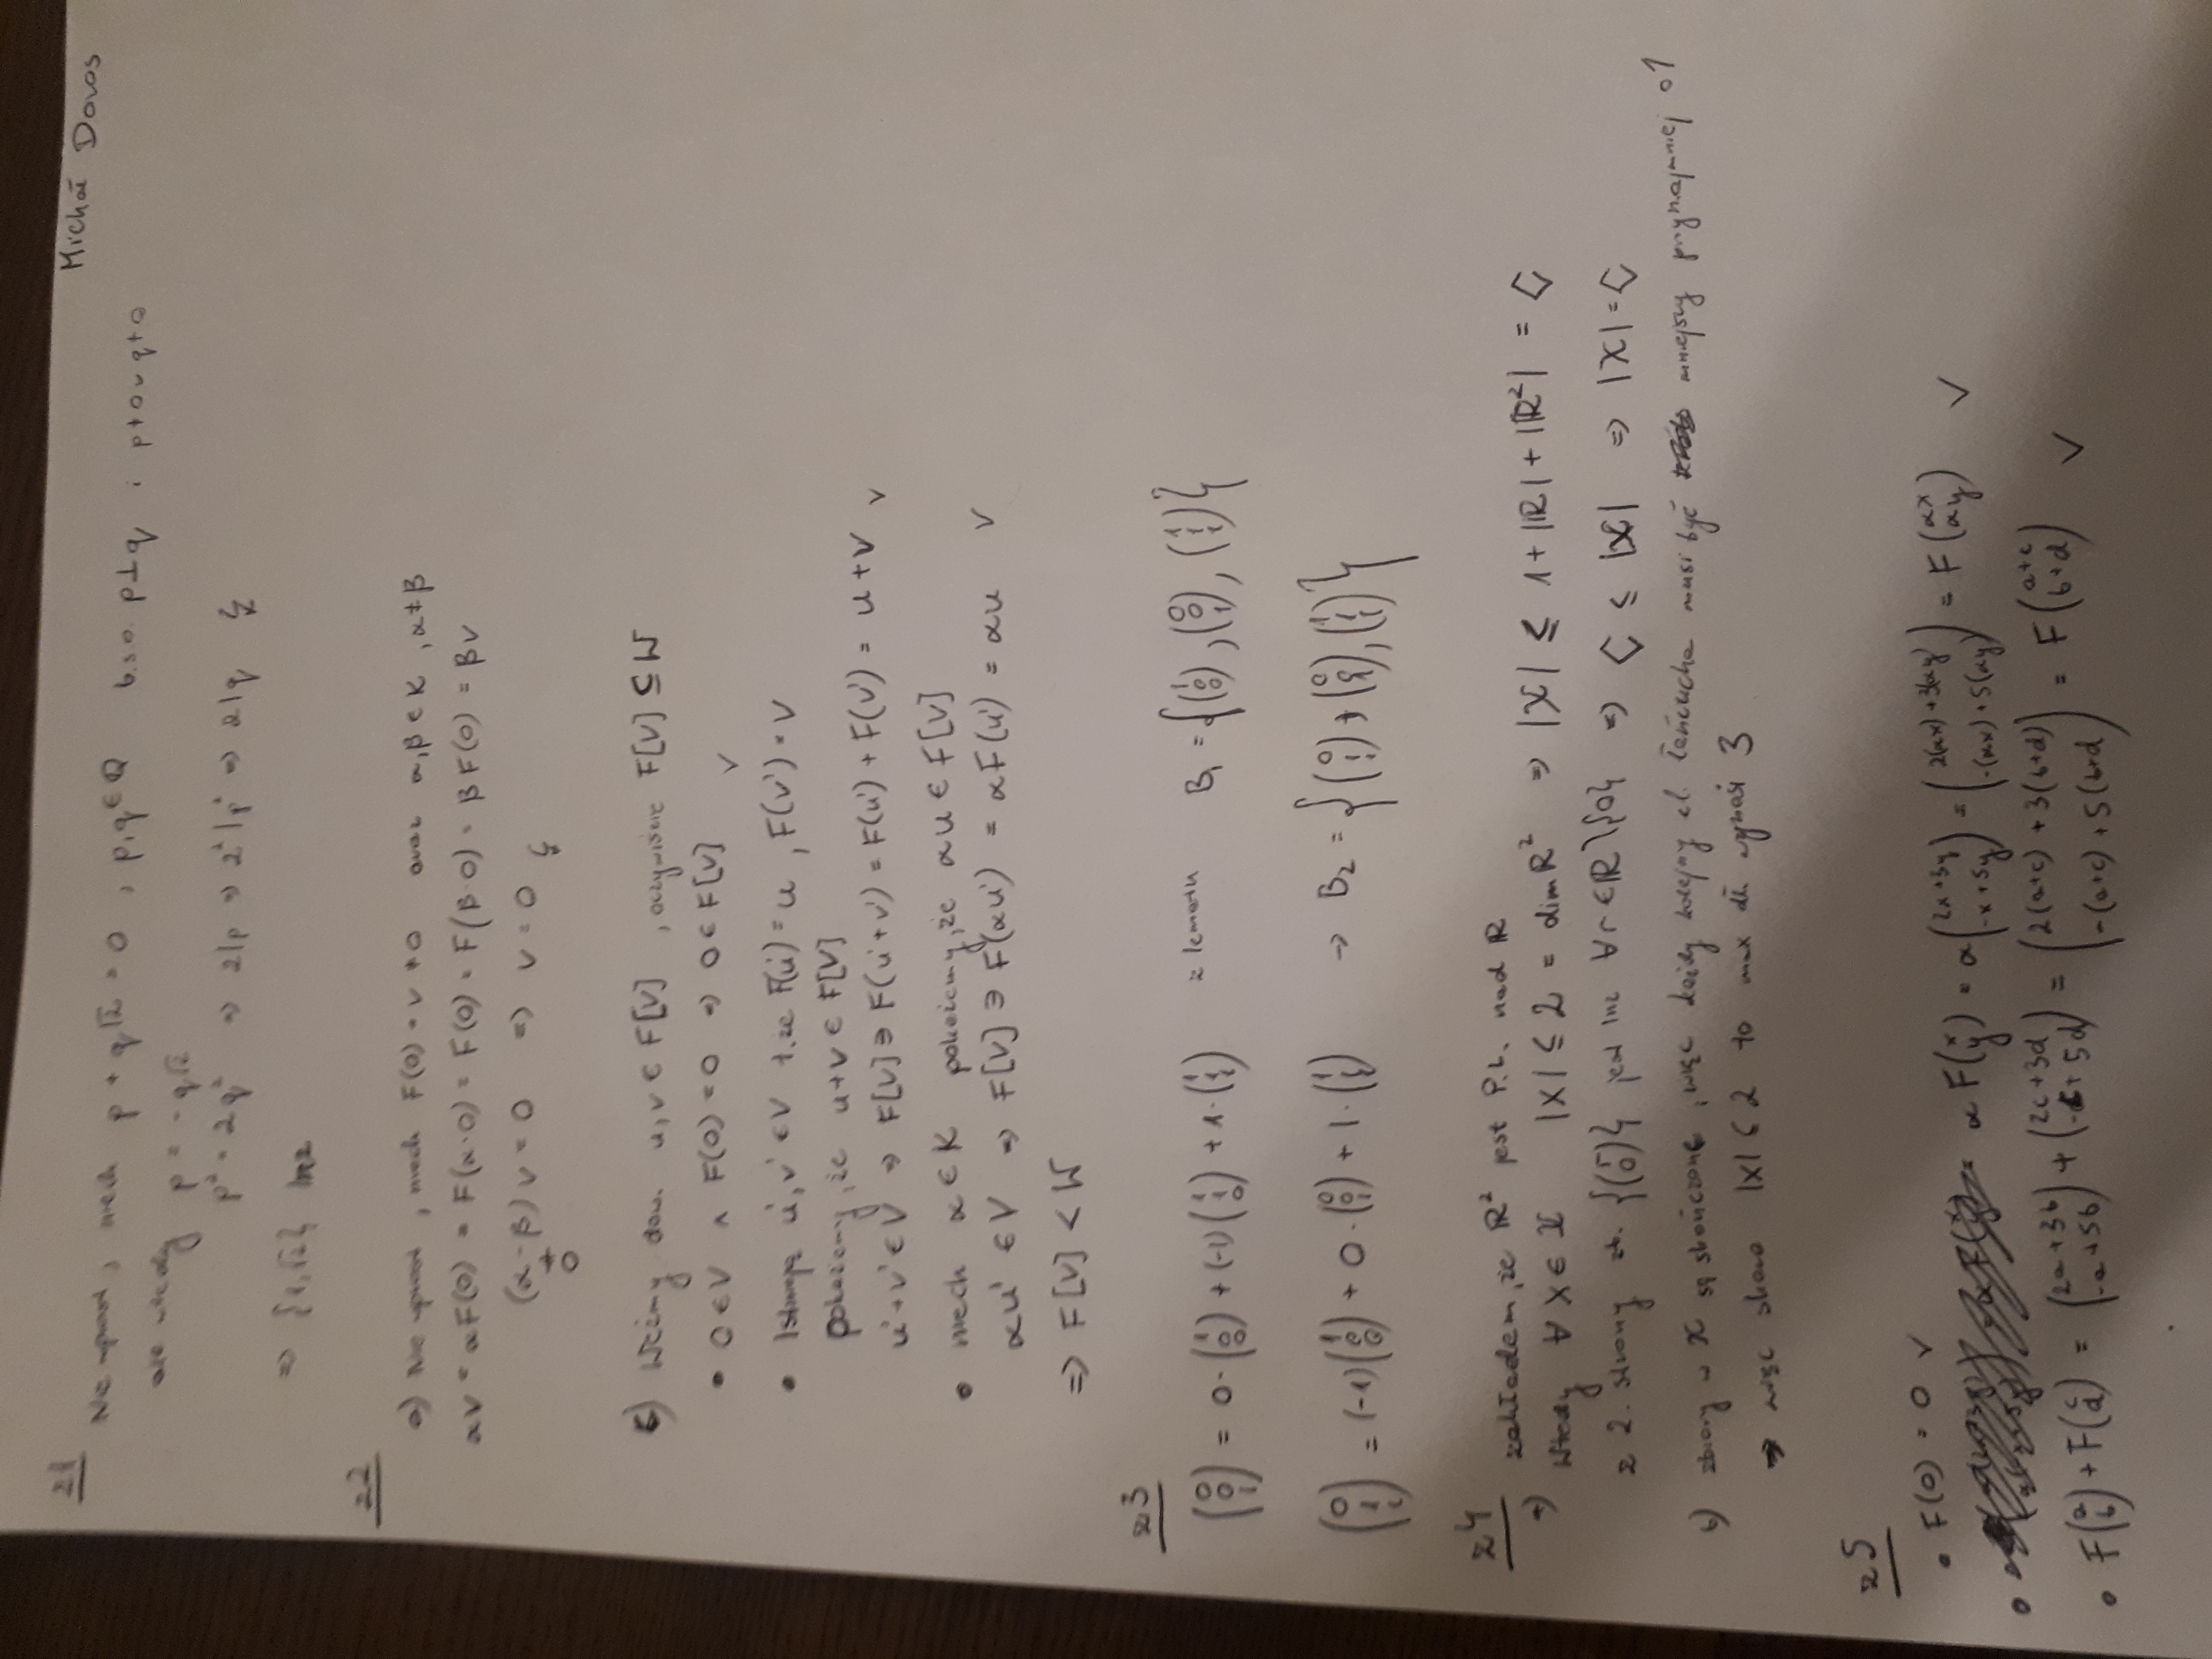 Michał Doros
z1
Nie wprost, niech p + q√2 = 0 , p,q ∈ Q b.s.o. p⊥q i p≠0 ∨ q≠0
ale wtedy p = -q√2
p² = 2q² ⇒ 2|p ⇒ 2²|p² ⇒ 2|q ↯
⇒ {1,√2} lnz
z2
a) Nie wprost, niech F(0) = v ≠ 0 oraz α,β ∈ K , α≠β
αv = αF(0) = F(α·0) = F(0) = F(β·0) = βF(0) = βv
(α-β)v = 0 ⇒ v = 0 ↯
≠
0
b) Weźmy dow. u,v ∈ F[V] , oczywiście F[V] ⊆ W
• 0 ∈ V ∧ F(0) = 0 ⇒ 0 ∈ F[V] ✓
• Istnieją u',v' ∈ V t.że F(u') = u , F(v') = v
pokażemy, że u+v ∈ F[V]
u'+v' ∈ V ⇒ F[V] ∋ F(u'+v') = F(u') + F(v') = u+v ✓
• niech α ∈ K pokażemy, że αu ∈ F[V]
αu' ∈ V ⇒ F[V] ∋ F(αu') = αF(u') = αu ✓
⇒ F[V] < W
z3
(0 0 1) = 0·(1 0 0) + (-1)(1 1 0) + 1·(1 1 1) z lematu B₁ = {(1 0 0), (0 0 1), (1 1 1)}
(0 1 1) = (-1)(1 0 0) + 0·(0 0 1) + 1·(1 1 1) → B₂ = {(0 1 1), (0 0 1), (1 1 1)}
z4
zakładam, że R² jest P.L. nad R
a) Wtedy ∀ X ∈ X |X| ≤ 2 = dim R² ⇒ |X| ≤ 1 + |R| + |R²| = C
z 2. strony zb. {(r 0)} jest lnz ∀r ∈ R\{0} ⇒ C ≤ |X| ⇒ |X| = C
b) zbiory w X są skończone, więc każdy kolejny el. łańcucha musi być mniejszy przynajmniej o 1
→ więc skoro |X| ≤ 2 to max dł. wynosi 3
z5
• F(0) = 0 ✓
• αF(x y) = α(2x+3y -x+5y) = (2(αx)+3(αy) -(αx)+5(αy)) = F(αx αy) ✓
• F(a b) + F(c d) = (2a+3b -a+5b) + (2c+3d -c+5d) = (2(a+c) + 3(b+d) -(a+c) + 5(b+d) = F(a+c b+d) ✓